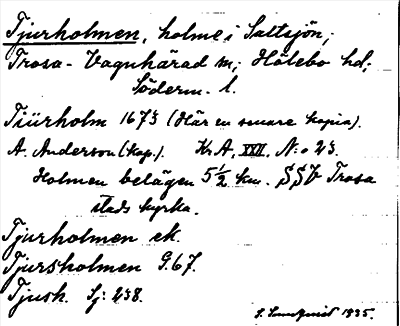 Tjurholmen, holme i Saltsjön,
Trosa-Vagnhärad sn; Hölebo hd;
Söderm. l.
Tiürholm 1673 (Här en senare kopia).
A. Anderson (kap.). Kr A, XXII, N:o 23.
Holmen belägen 5 1/2 km. SSV Trosa
stads kyrka.
Tjurholmen ek.
Tjursholmen G.67.
Tjush. Sj: 238.
Lundquist 1935.